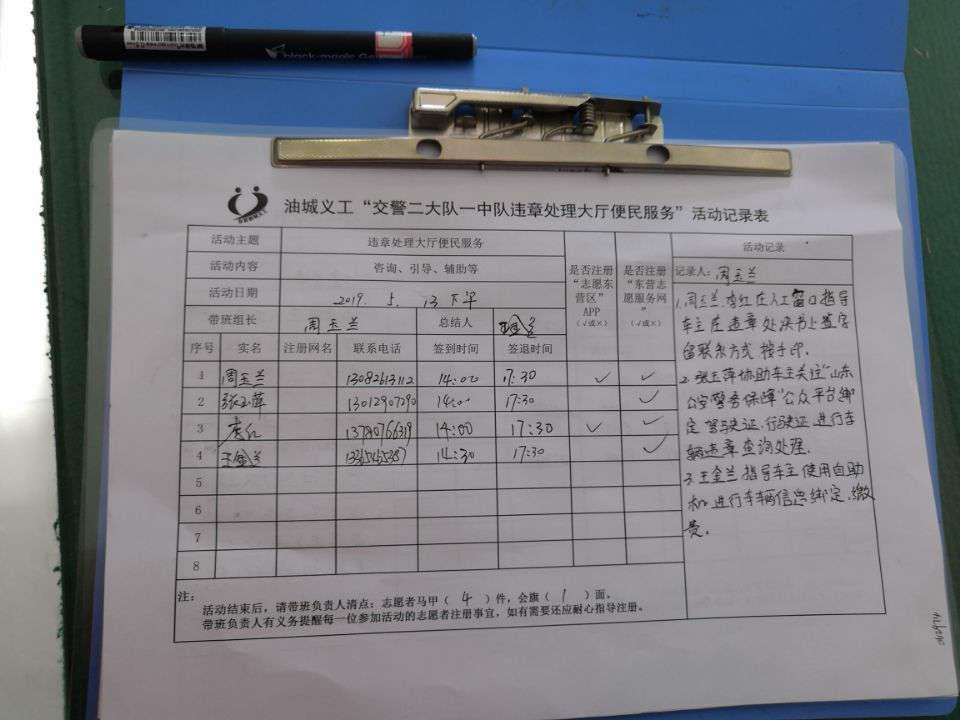 black-magic
油城义工“交警二大队一中队违章处理大厅便民服务”活动记录表
活动主题 违章处理大厅便民服务
活动内容 咨询、引导、辅助等
活动日期 2019. 5. 13 下午
带班组长 周玉兰 总结人 王金兰
是否注册“志愿东营区”APP（√或×）
是否注册“东营志愿服务网”（√或×）
序号 实名 注册网名 联系电话 签到时间 签退时间
1 周玉兰 13082613112 14:00 17:30 √ √
2 张玉萍 13012907290 14:00 17:30 √
3 唐红 14:00 17:30 √ √
4 王金兰 14:30 17:30 √
5
6
7
8
活动记录
记录人：周玉兰
1.周玉兰、唐红在人工窗口指导
车主在违章处决书上签字
留联系方式 按手印.
2.张玉萍协助车主关注“山东
公安警务保障”公众平台绑
定驾驶证.行驶证.进行车
辆违章查询处理.
3.王金兰指导车主使用自助
机进行车辆信息绑定.缴
费.
注：
活动结束后，请带班负责人清点：志愿者马甲（ 4 ）件，会旗（ 1 ）面。
带班负责人有义务提醒每一位参加活动的志愿者注册事宜，如有需要还应耐心指导注册。